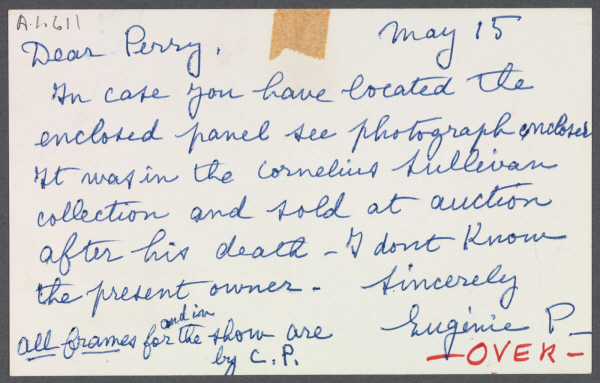 A.L.611
May 15
Dear Perry,
In case you have located the
enclosed panel see photograph encloser
It was in the Cornelius Sullivan
collection and sold at auction
after his death - I dont Know
the present owner - Sincerely
Eugénie P.
all frames for and in the show are
by C.P.
- OVER -